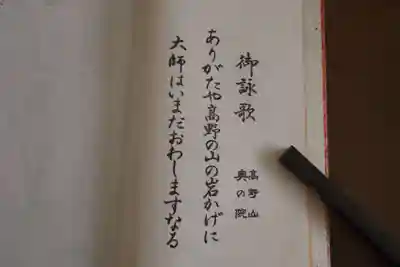 御詠歌
高野山
奥の院
ありがたや高野の山の岩かげに
大師はいまだおわしますなる